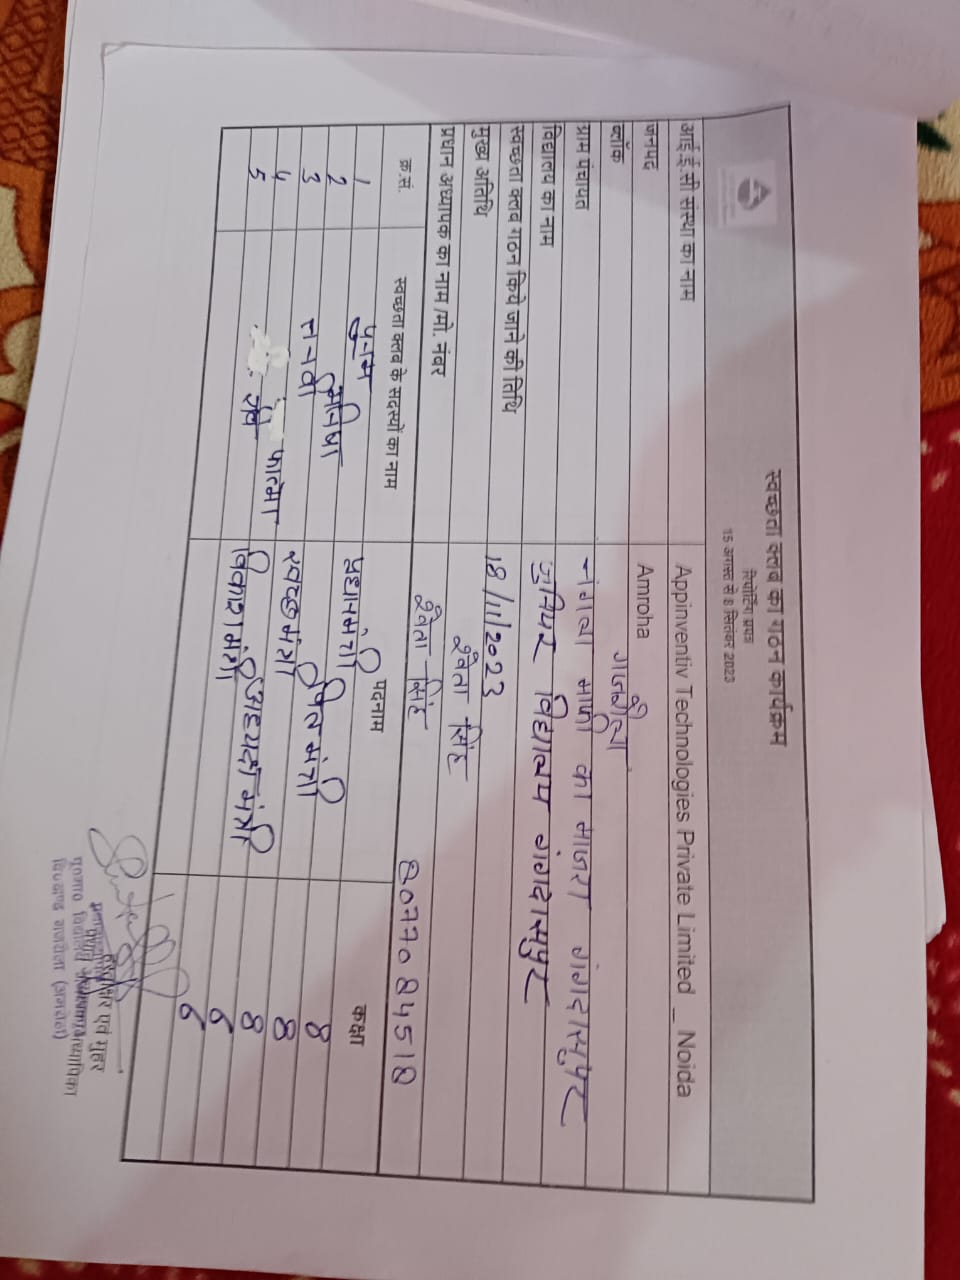 स्वच्छता क्लब का गठन कार्यक्रम
रिपोर्टिंग प्रपत्र
15 अगस्त से 8 सितंबर 2023
आई.ई.सी संस्था का नाम Appinventiv Technologies Private Limited _ Noida
जनपद Amroha
ब्लॉक गजरौला
ग्राम पंचायत नंगला माफी का मजरा गंगदासपुर
विद्यालय का नाम जुनियर विद्यालय गंगदासपुर
स्वच्छता क्लब गठन किये जाने की तिथि 18/11/2023
मुख्य अतिथि श्वेता सिंह
प्रधान अध्यापक का नाम /मो. नंबर श्वेता सिंह 8077084518
क्र.सं. स्वच्छता क्लब के सदस्यों का नाम पदनाम कक्षा
1 पुनम प्रधानमंत्री 8
2 मुनिषा जल मंत्री 8
3 स्वच्छ मंत्री 8
4 फात्मा मंत्री 6
5 विकास मंत्री 6
हस्ताक्षर एवं मुहर